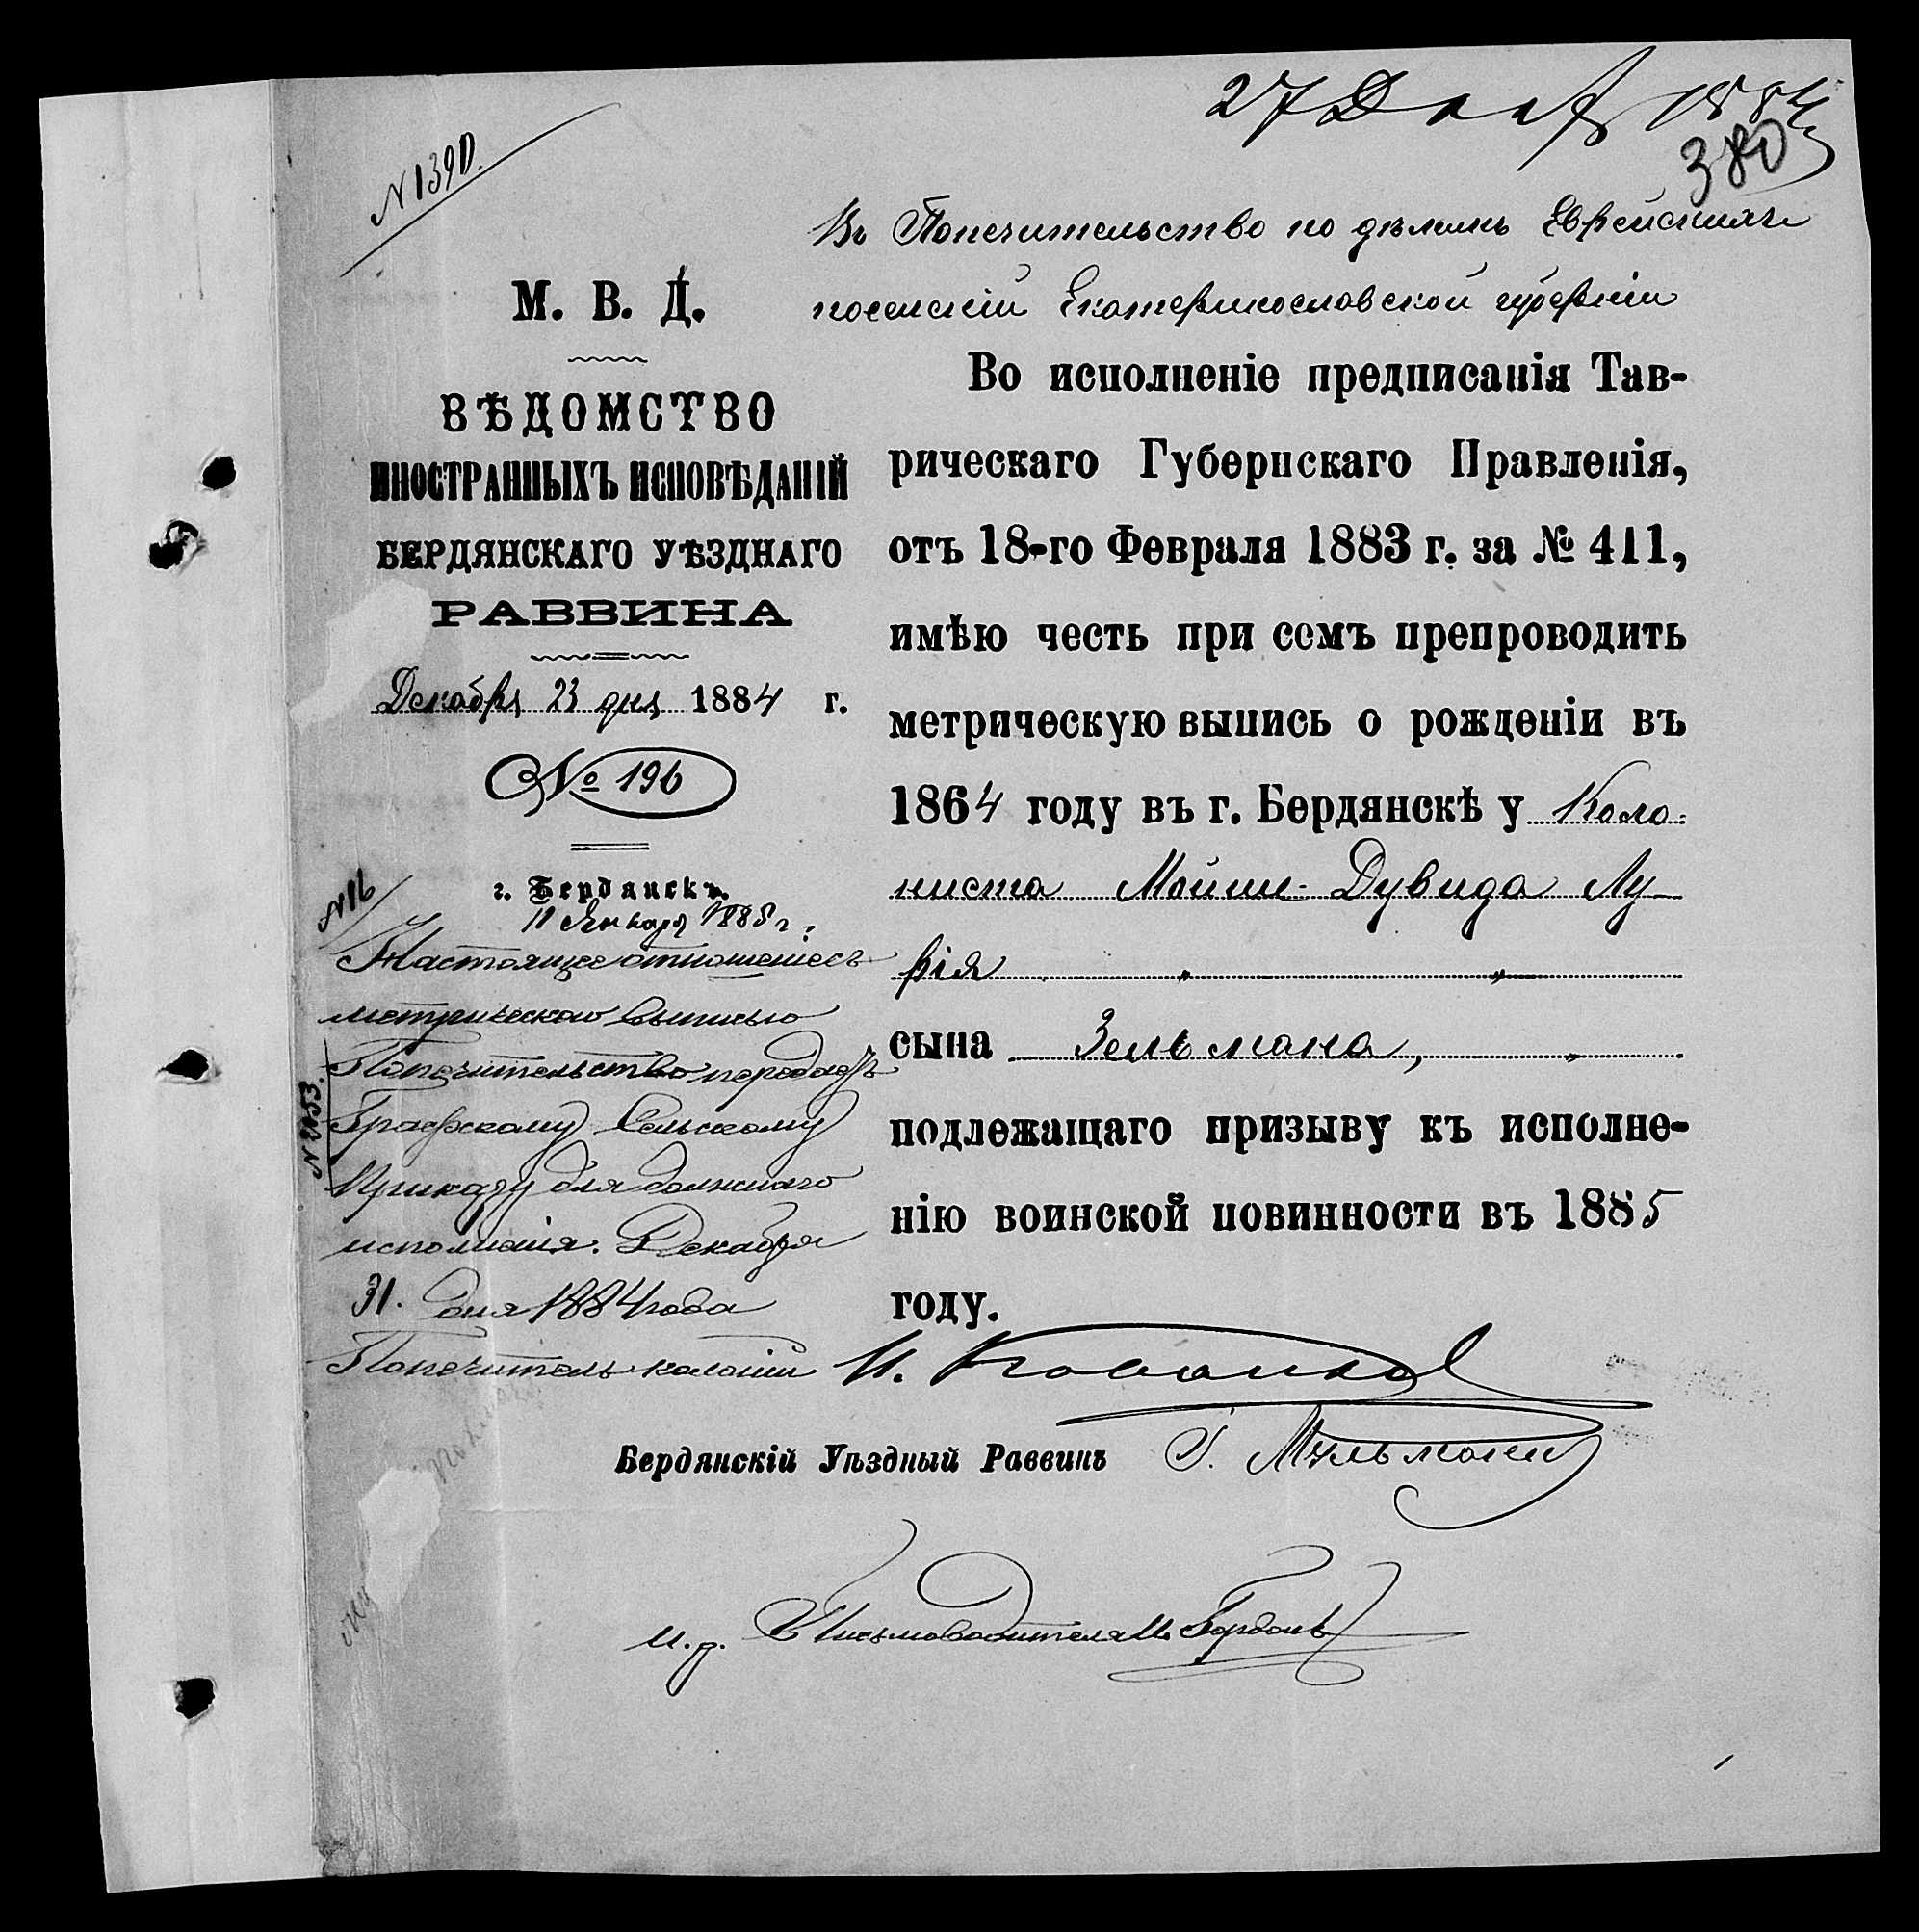 27 Дек 1884
380
N 1390.
Въ Попечительство по дѣламъ Еврейскихъ
поселеній Екатеринославской губерніи
М. В. Д.
ВѢДОМСТВО
ИНОСТРАННЫХЪ ИСПОВѢДАНІЙ
БЕРДЯНСКАГО УѢЗДНАГО
РАВВИНА
Декабря 23 дня 1884 г.
№ 196
г. Бердянскъ.
Во исполненіе предписанія Тав-
рическаго Губернскаго Правленія,
отъ 18-го Февраля 1883 г. за № 411,
имѣю честь при семъ препроводить
метрическую выпись о рожденіи въ
1864 году въ г. Бердянскѣ у Коло-
ниста Мойше-Дувида Лу-
рія " "
сына Зельмана, "
подлежащаго призыву къ исполне-
нію воинской повинности въ 1885
году.
N 16
11 Января 1885 г.
Настоящее отношеніе съ
метрическою выписью
Попечительство передаетъ
Графскому Сельскому
Приказу для должнаго
исполненія. Декабря
31. дня 1884 года
Попечитель колоній И.
N 2153.
Бердянскій Уѣздный Раввинъ
и. д. Письмоводителя М. Гордонъ